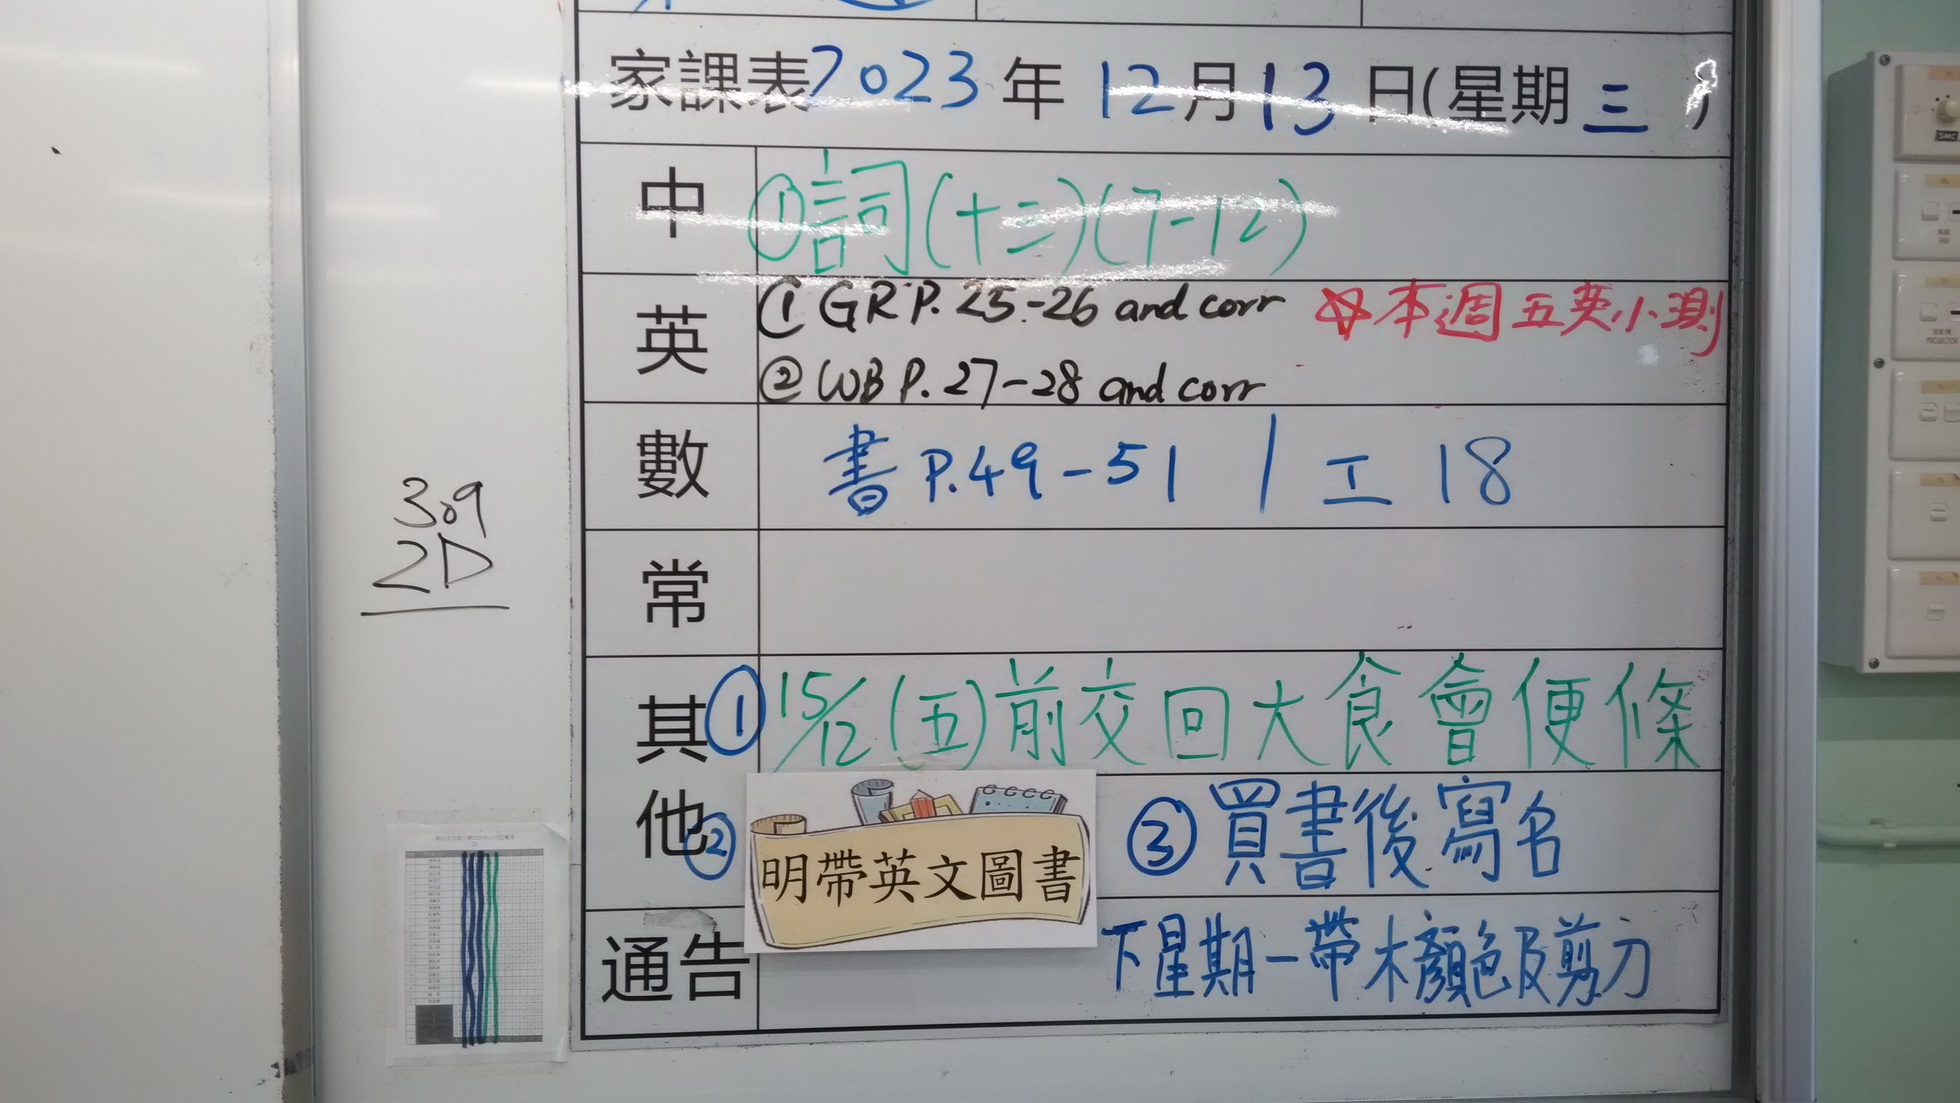 家課表2023年12月13日(星期三)
中
①詞(十二)(7-12)
英
①GR P.25-26 and corr ☆本週五英小測
②WB P.27-28 and corr
數
書 P.49-51 / 工 18
常
309
2D
其他
①15/12(五)前交回大食會便條
②明帶英文圖書
③買書後寫名
通告
下星期一帶木顏色及剪刀
PROJECTOR